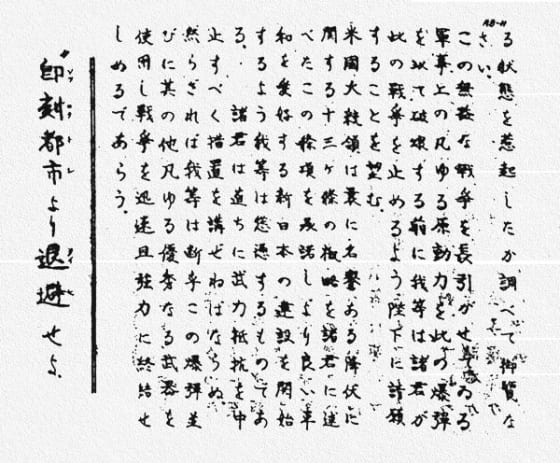 AB-11
る状態を惹起したか調べて御覧な
さい。
この無益な戦争を長引かせてゐる
軍事上の凡ゆる原動力を此の爆弾
を以て破壊する前に我等は諸君が
此の戦争を止めるよう陛下に請願
することを望む。
米國大統領は曩に名誉ある降伏に
関する十三ヶ條の概略を諸君に述
べたこの條項を承諾しより良い平
和を愛好する新日本の建設を開始
するよう我等は慫慂するものであ
る。 諸君は直ちに武力抵抗を中
止すべく措置を講ぜねばならぬ。
然らざれば我等は断乎この爆弾並
びに其の他凡ゆる優秀なる武器を
使用し戦争を迅速且強力に終結せ
しめるであらう。
"即刻都市より退避せよ